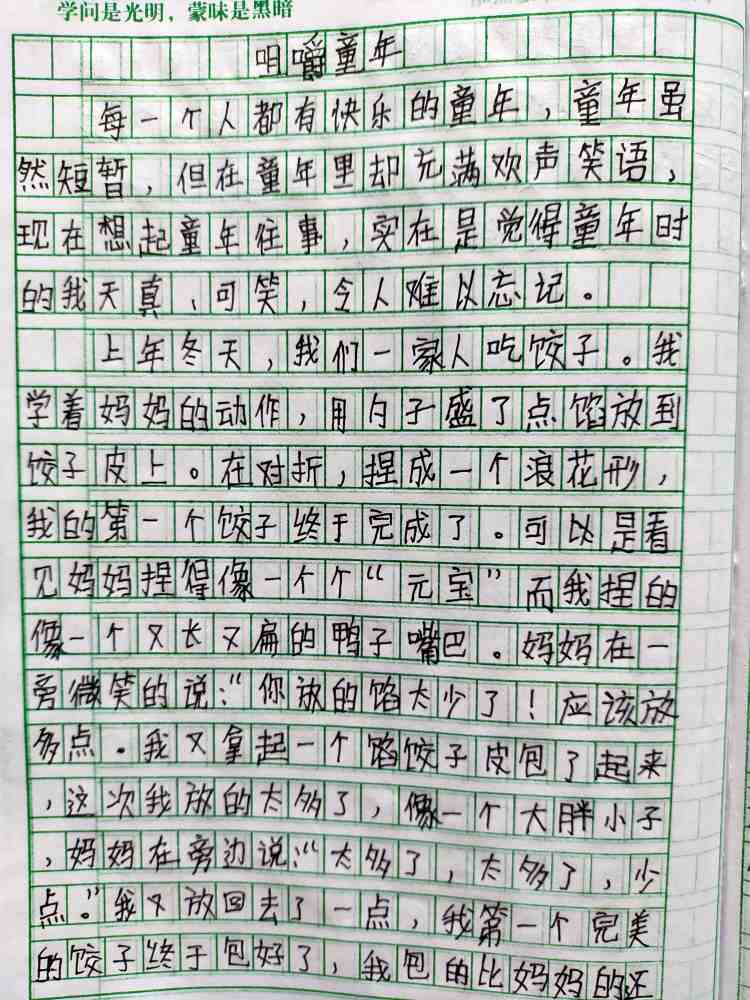 学问是光明，蒙昧是黑暗
咀嚼童年
每一个人都有快乐的童年，童年虽
然短暂，但在童年里却充满欢声笑语，
现在想起童年往事，实在是觉得童年时
的我天真、可笑，令人难以忘记。
上年冬天，我们一家人吃饺子。我
学着妈妈的动作，用勺子盛了点馅放到
饺子皮上。在对折，捏成一个浪花形，
我的第一个饺子终于完成了。可以是看
见妈妈捏得像一个个“元宝”而我捏的
像一个又长又扁的鸭子嘴巴。妈妈在一
旁微笑的说：“你放的馅太少了！应该放
多点。我又拿起一个馅饺子皮包了起来
，这次我放的太多了，像一个大胖小子
，妈妈在旁边说：“太多了，太多了，少
点。”我又放回去了一点，我第一个完美
的饺子终于包好了，我包的比妈妈的还